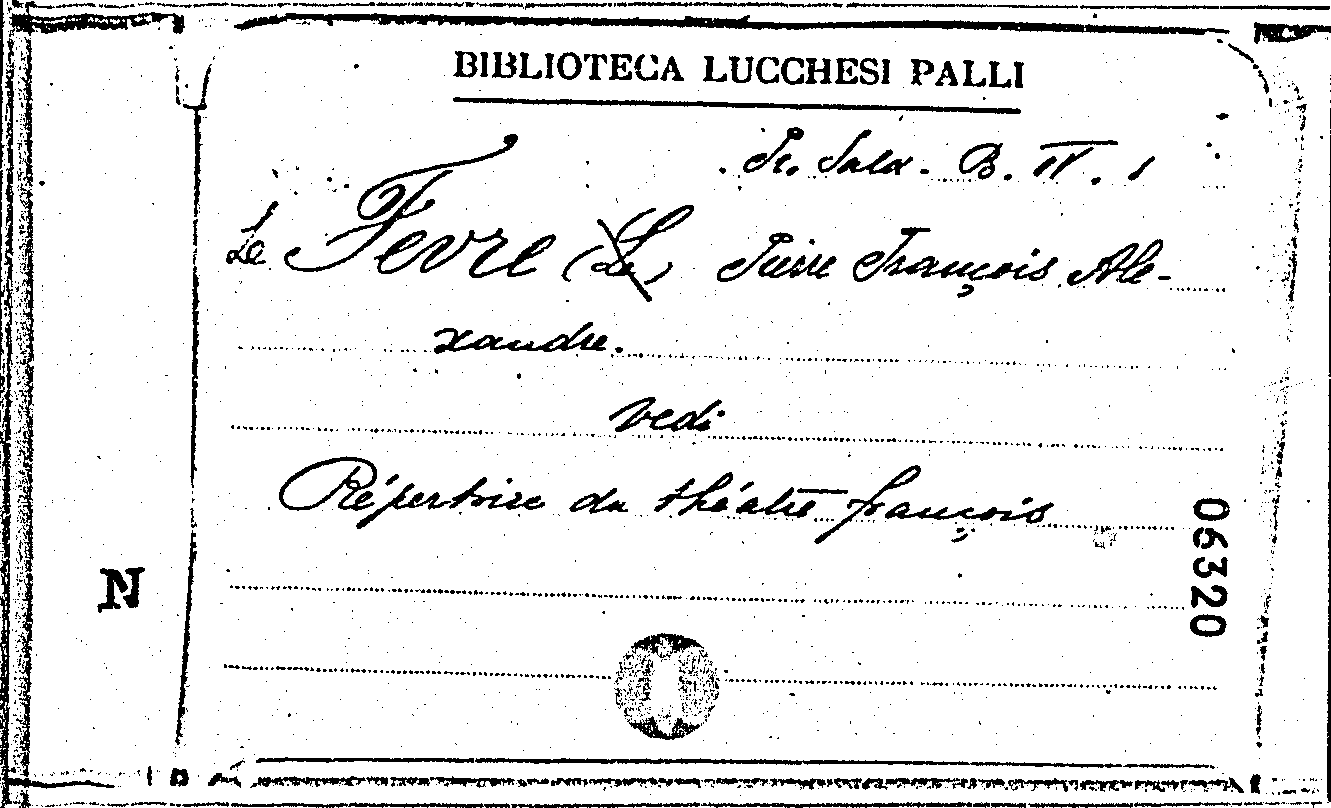 BIBLIOTECA LUCCHESI PALLI
Sr. Sala. B. IV. 1
Le Fevre (Le) Pierre François Ale-
xandre.
vedi
Répertoire du théatre françois
06320
N